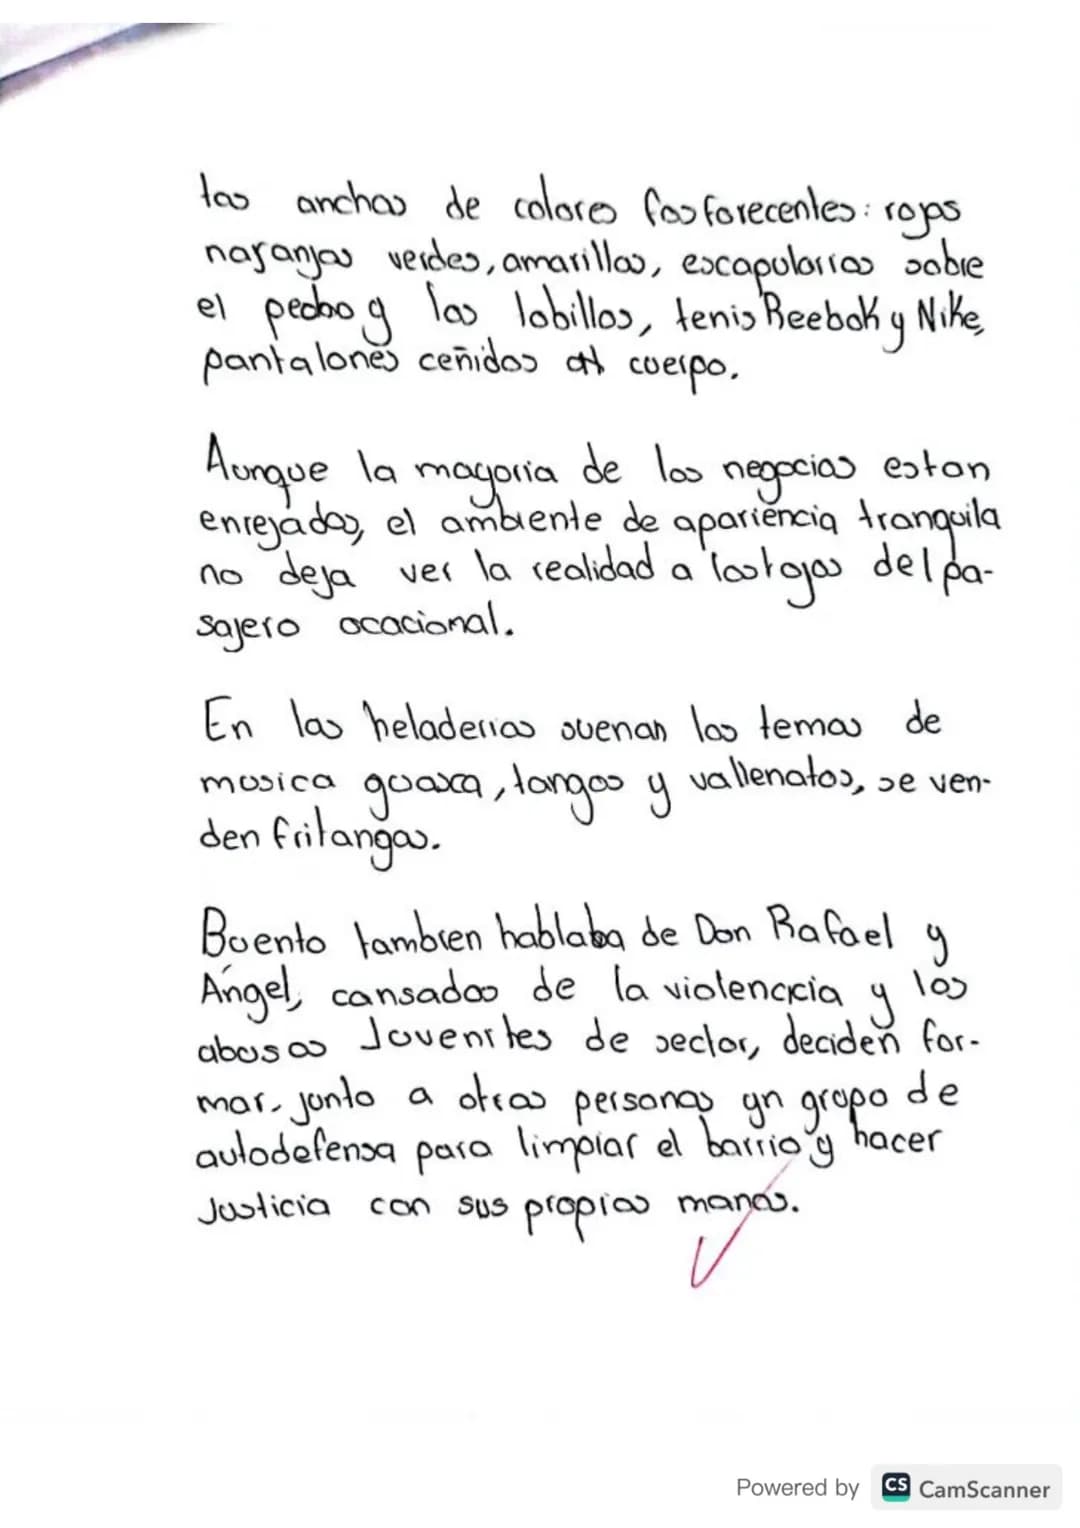 tas anchas de colores fosforecentes: rojas
naranjas verdes, amarillas, escapularios sobre
el pecho y los tobillos, tenis Reebok y Nike,
pantalones ceñidos al cuerpo.
Aunque la mayoria de los negocios estan
enrejados, el ambiente de apariencia tranquila
no deja ver la realidad a los ojos del pa-
sajero ocacional.
En las heladerias suenan los temas de
musica guasca, tangos y vallenatos, se ven-
den fritangas.
Buento tambien hablaba de Don Rafael y
Ángel, cansados de la violencia y los
abusos Joveniles de sector, deciden for-
mar, junto a otras personas un grupo de
autodefensa para limpiar el barrio y hacer
Justicia con sus propias manos.
Powered by CS CamScanner